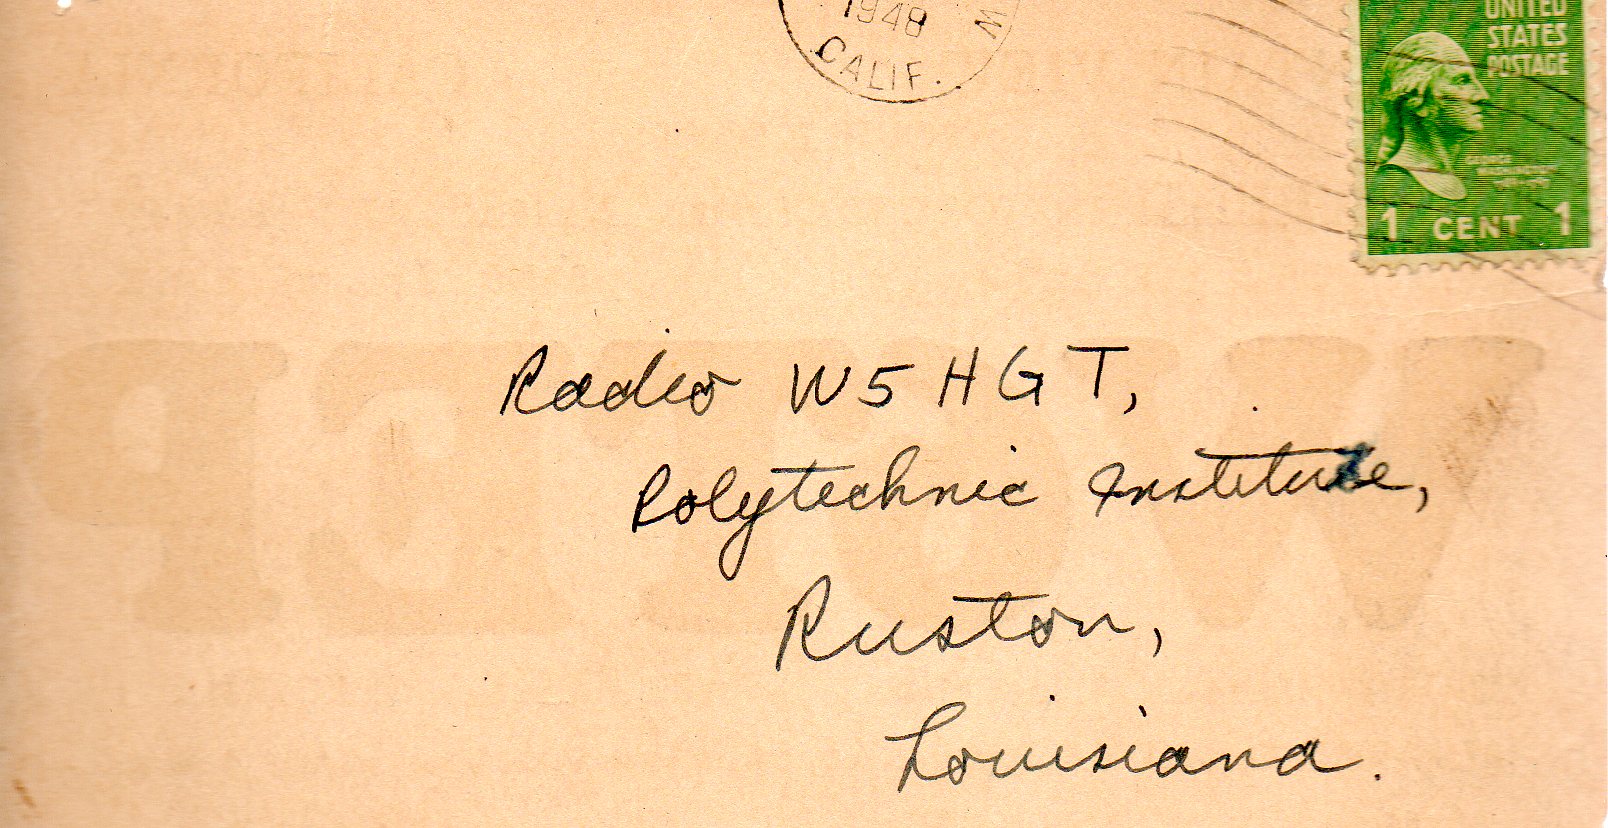 1948
M
CALIF.
UNITED
STATES
POSTAGE
GEORGE
WASHINGTON
1 CENT 1
Radio W5HGT,
Polytechnic Institute,
Ruston,
Louisiana.